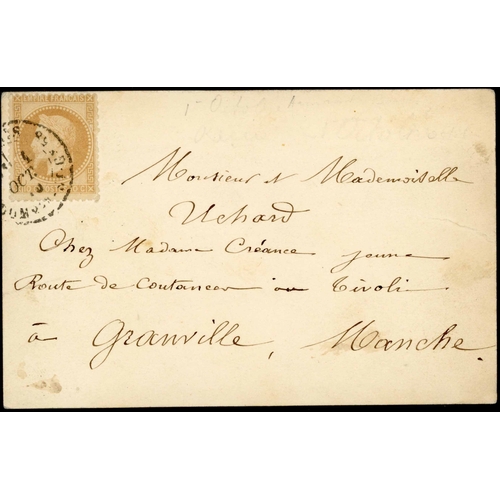 EMPIRE FRANÇAIS
OCT.
Monsieur et Mademoiselle
Uchard
Chez Madame Créance jeune
Route de Coutances ou Tivoli
à Granville, Manche.